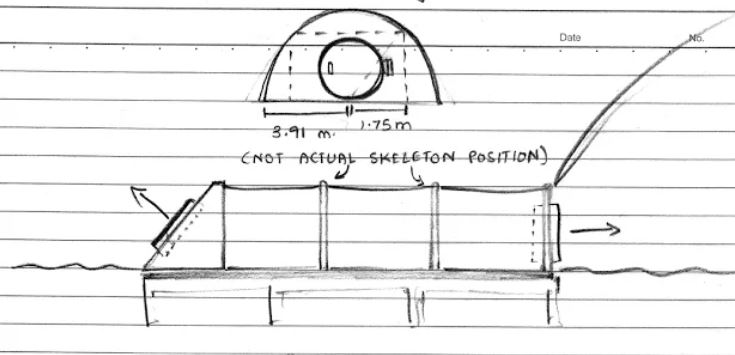 Date
No.
3.91 m. 1.75m
(NOT ACTUAL SKELETON POSITION)